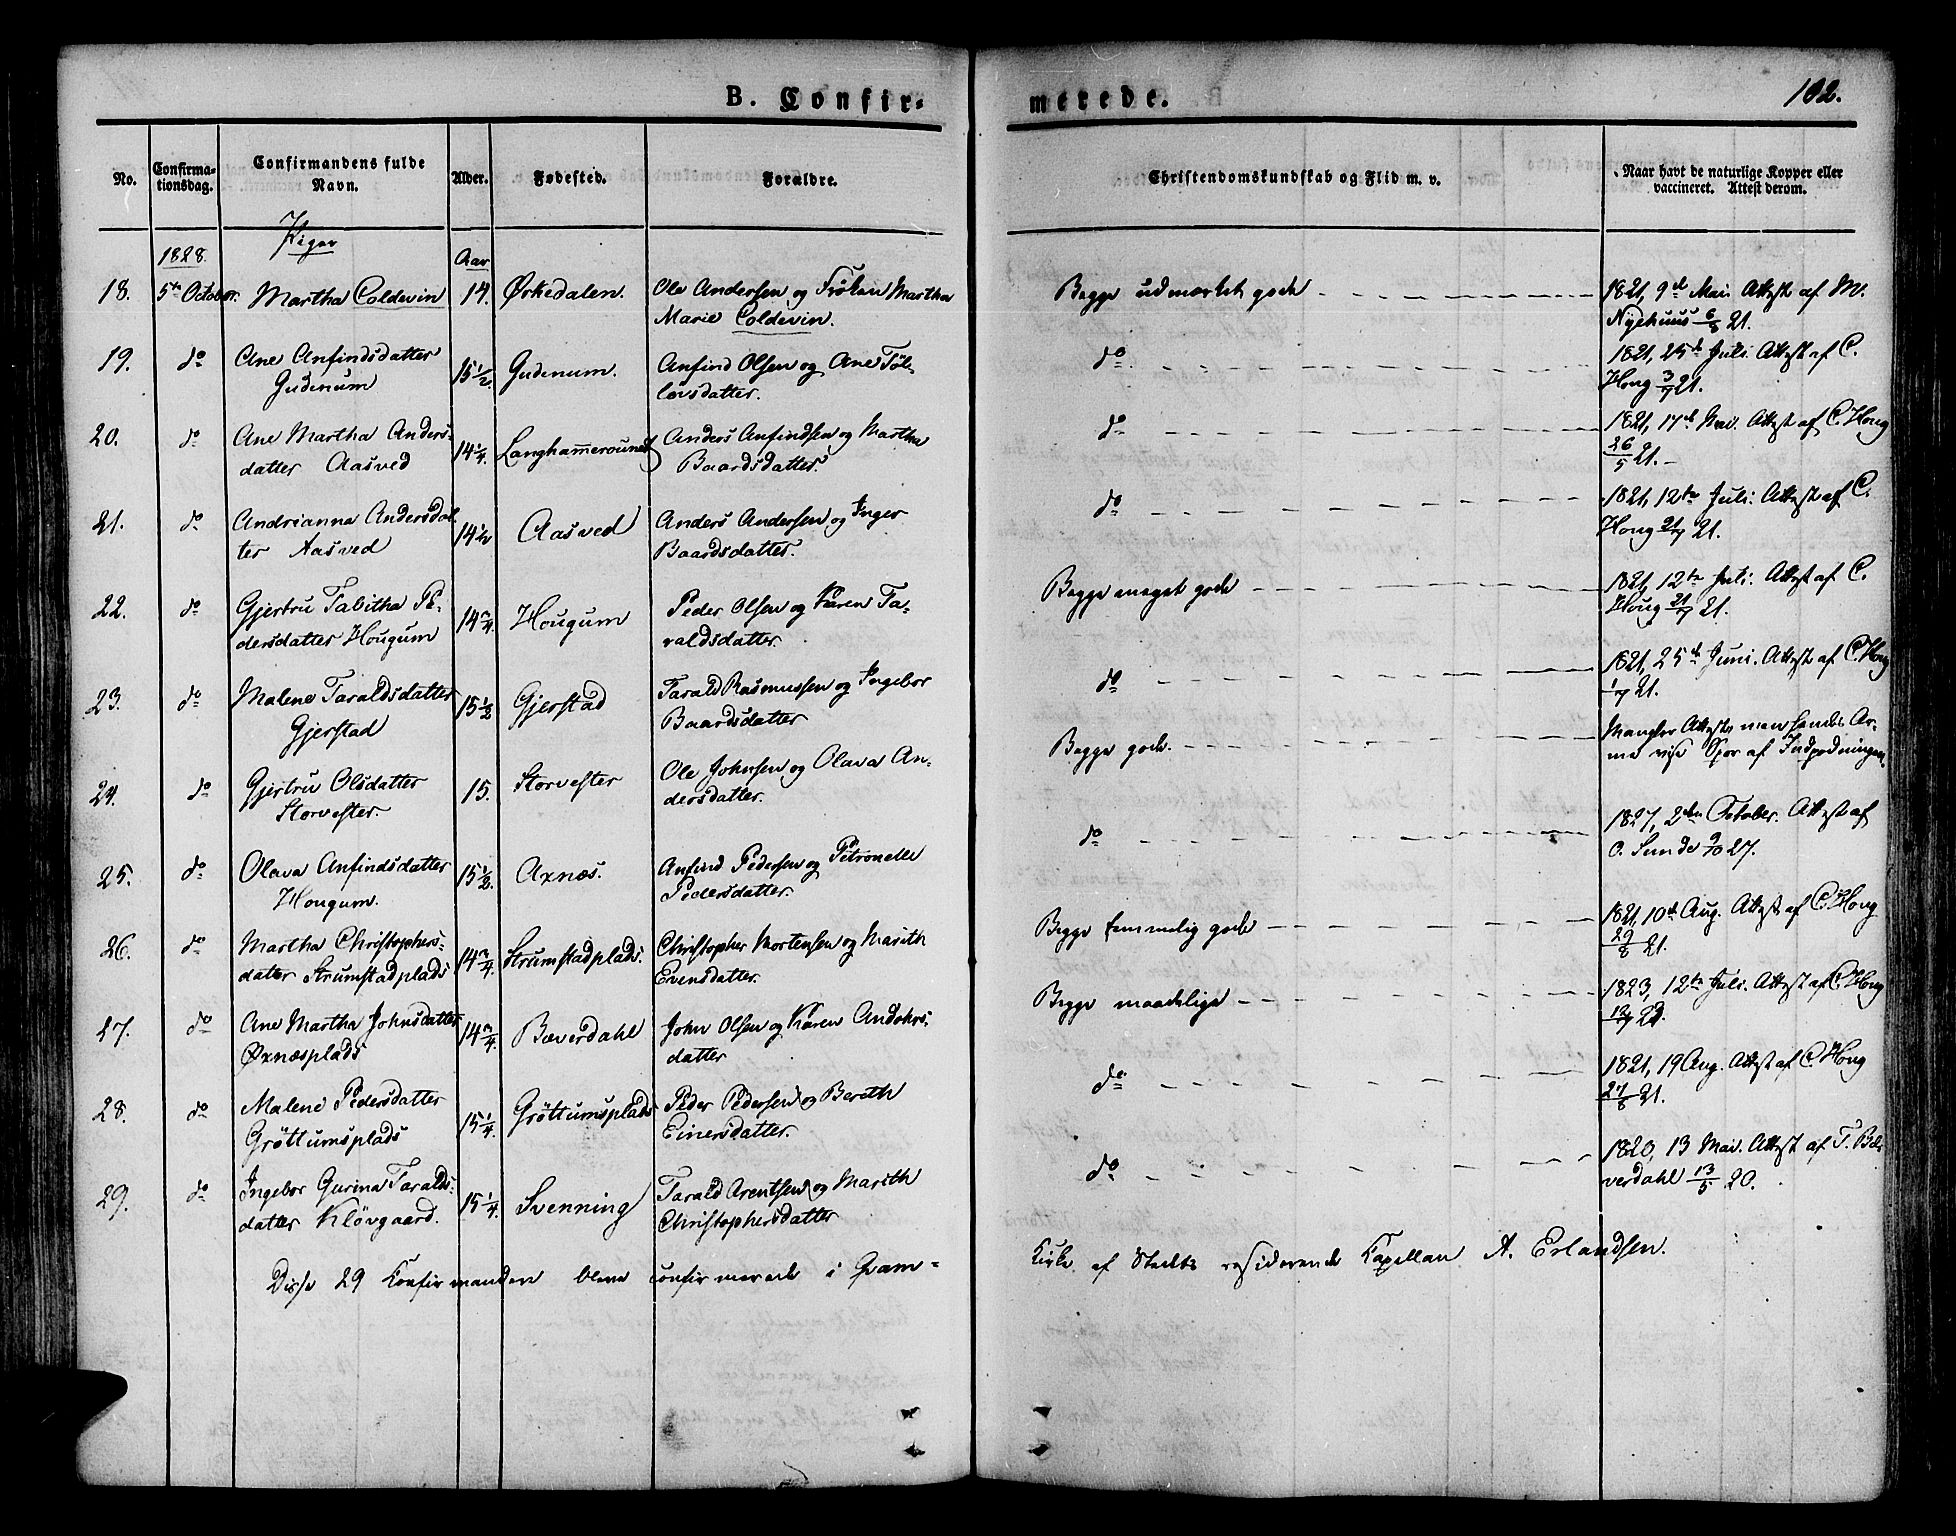 B. Confir-
merede.
102.
No.
Confirma-
tionsdag.
Confirmandens fulde
Navn.
Alder.
Fødested.
Foraldre.
Christendomskundskab og Flid m. v.
Naar havt de naturlige Kopper eller
vaccineret. Attest derom.
1828.
Piger
Aar
18. 5te October. Martha Coldevin 14. Ørkedalen. Ole Andersen og Frøken Martha
Marie Coldevin.
Begge udmærket gode
1821, 9de Mai. Attest af M.
Nyehuus 6/8 21.
19. do Ane Anfindsdatter
Gudenum
15 1/2 Gudenum. Anfind Olsen og Ane Tøl-
løvsdatter.
do
1821, 25de Juli. Attest af C.
Houg 3/7 21.
20. do Ane Martha Anders-
datter Aasved
14 1/4. Langhammerounet Anders Anfindsen og Martha
Baardsdatter.
do
1821, 17de Mai. Attest af C. Houg
26/5 21.
21. do Andrianna Andersdat
ter Aasved
14 1/2 Aasved Anders Andersen og Inger
Baardsdatter.
do
1821, 12te Juli. Attest af C.
Houg 21/7 21.
22. do Gjertru Tabitha Pe-
dersdatter Hougum
14 3/4. Hougum Peder Olsen og Karen Ta-
raldsdatter.
Begge meget gode
1821, 12te Juli. Attest af C.
Houg 21/7 21.
23. do Malene Taraldsdatter
Gjerstad
15 1/2 Gjerstad Tarald Rasmussen og Ingebor
Baardsdatter
do
1821, 25de Juni. Attest af C. Houg
1/7 21.
24. do Gjertru Olsdatter
Storvester.
15. Storvester Ole Johnsen og Olava An-
dersdatter.
Begge gode.
Mangler Attest, men hendes Ar-
me vise Spor af Indpodningen.
25. do Olava Anfindsdatter
Hougum.
15 1/2. Axnæs. Anfind Pedersen og Petronelle
Pedersdatter.
do
1827, 2den October. Attest af
O. Sunde 9/10 27.
26. do Martha Christophers-
datter Strumstadplads
14 3/4. Strumstadplads. Christopher Mortensen og Marith
Evensdatter.
Begge temmelig gode
1821, 10de Aug. Attest af C. Houg
29/8 21.
27. do Ane Martha Johnsdatter
Øxnæsplads
14 3/4. Bæverdahl John Olsen og Karen Andohrs-
datter
Begge maadelige
1823, 12te Juli. Attest af C. Houg
28. do Malene Pedersdatter
Grøttumsplads
15 1/4. Grøttumsplads Peder Pedersen og Bereth
Einersdatter.
do
1821, 19 Aug. Attest af C. Houg
27/8 21.
29. do Ingebor Gurina Taralds-
datter Kløvgaard.
15 1/4. Svenning Tarald Arentsen og Marith
Christophersdatter
do
1820, 13 Mai. Attest af T. Bæ-
verdahl 13/5 20.
Disse 29 Confirmander bleve confirmerede i Qvam-
Kirke af Stedets residerende Kapellan A. Erlandsen.